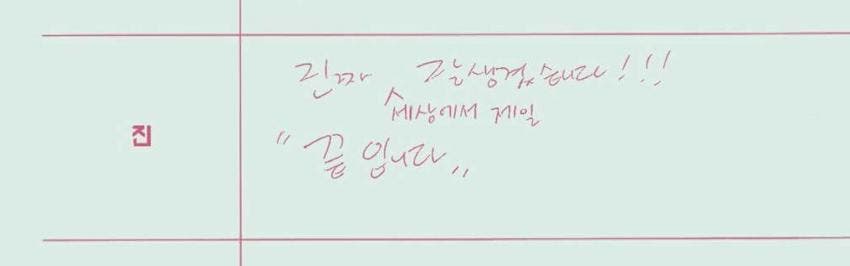 진
진짜 잘생겼습니다!!!
세상에서 제일
"끝입니다"